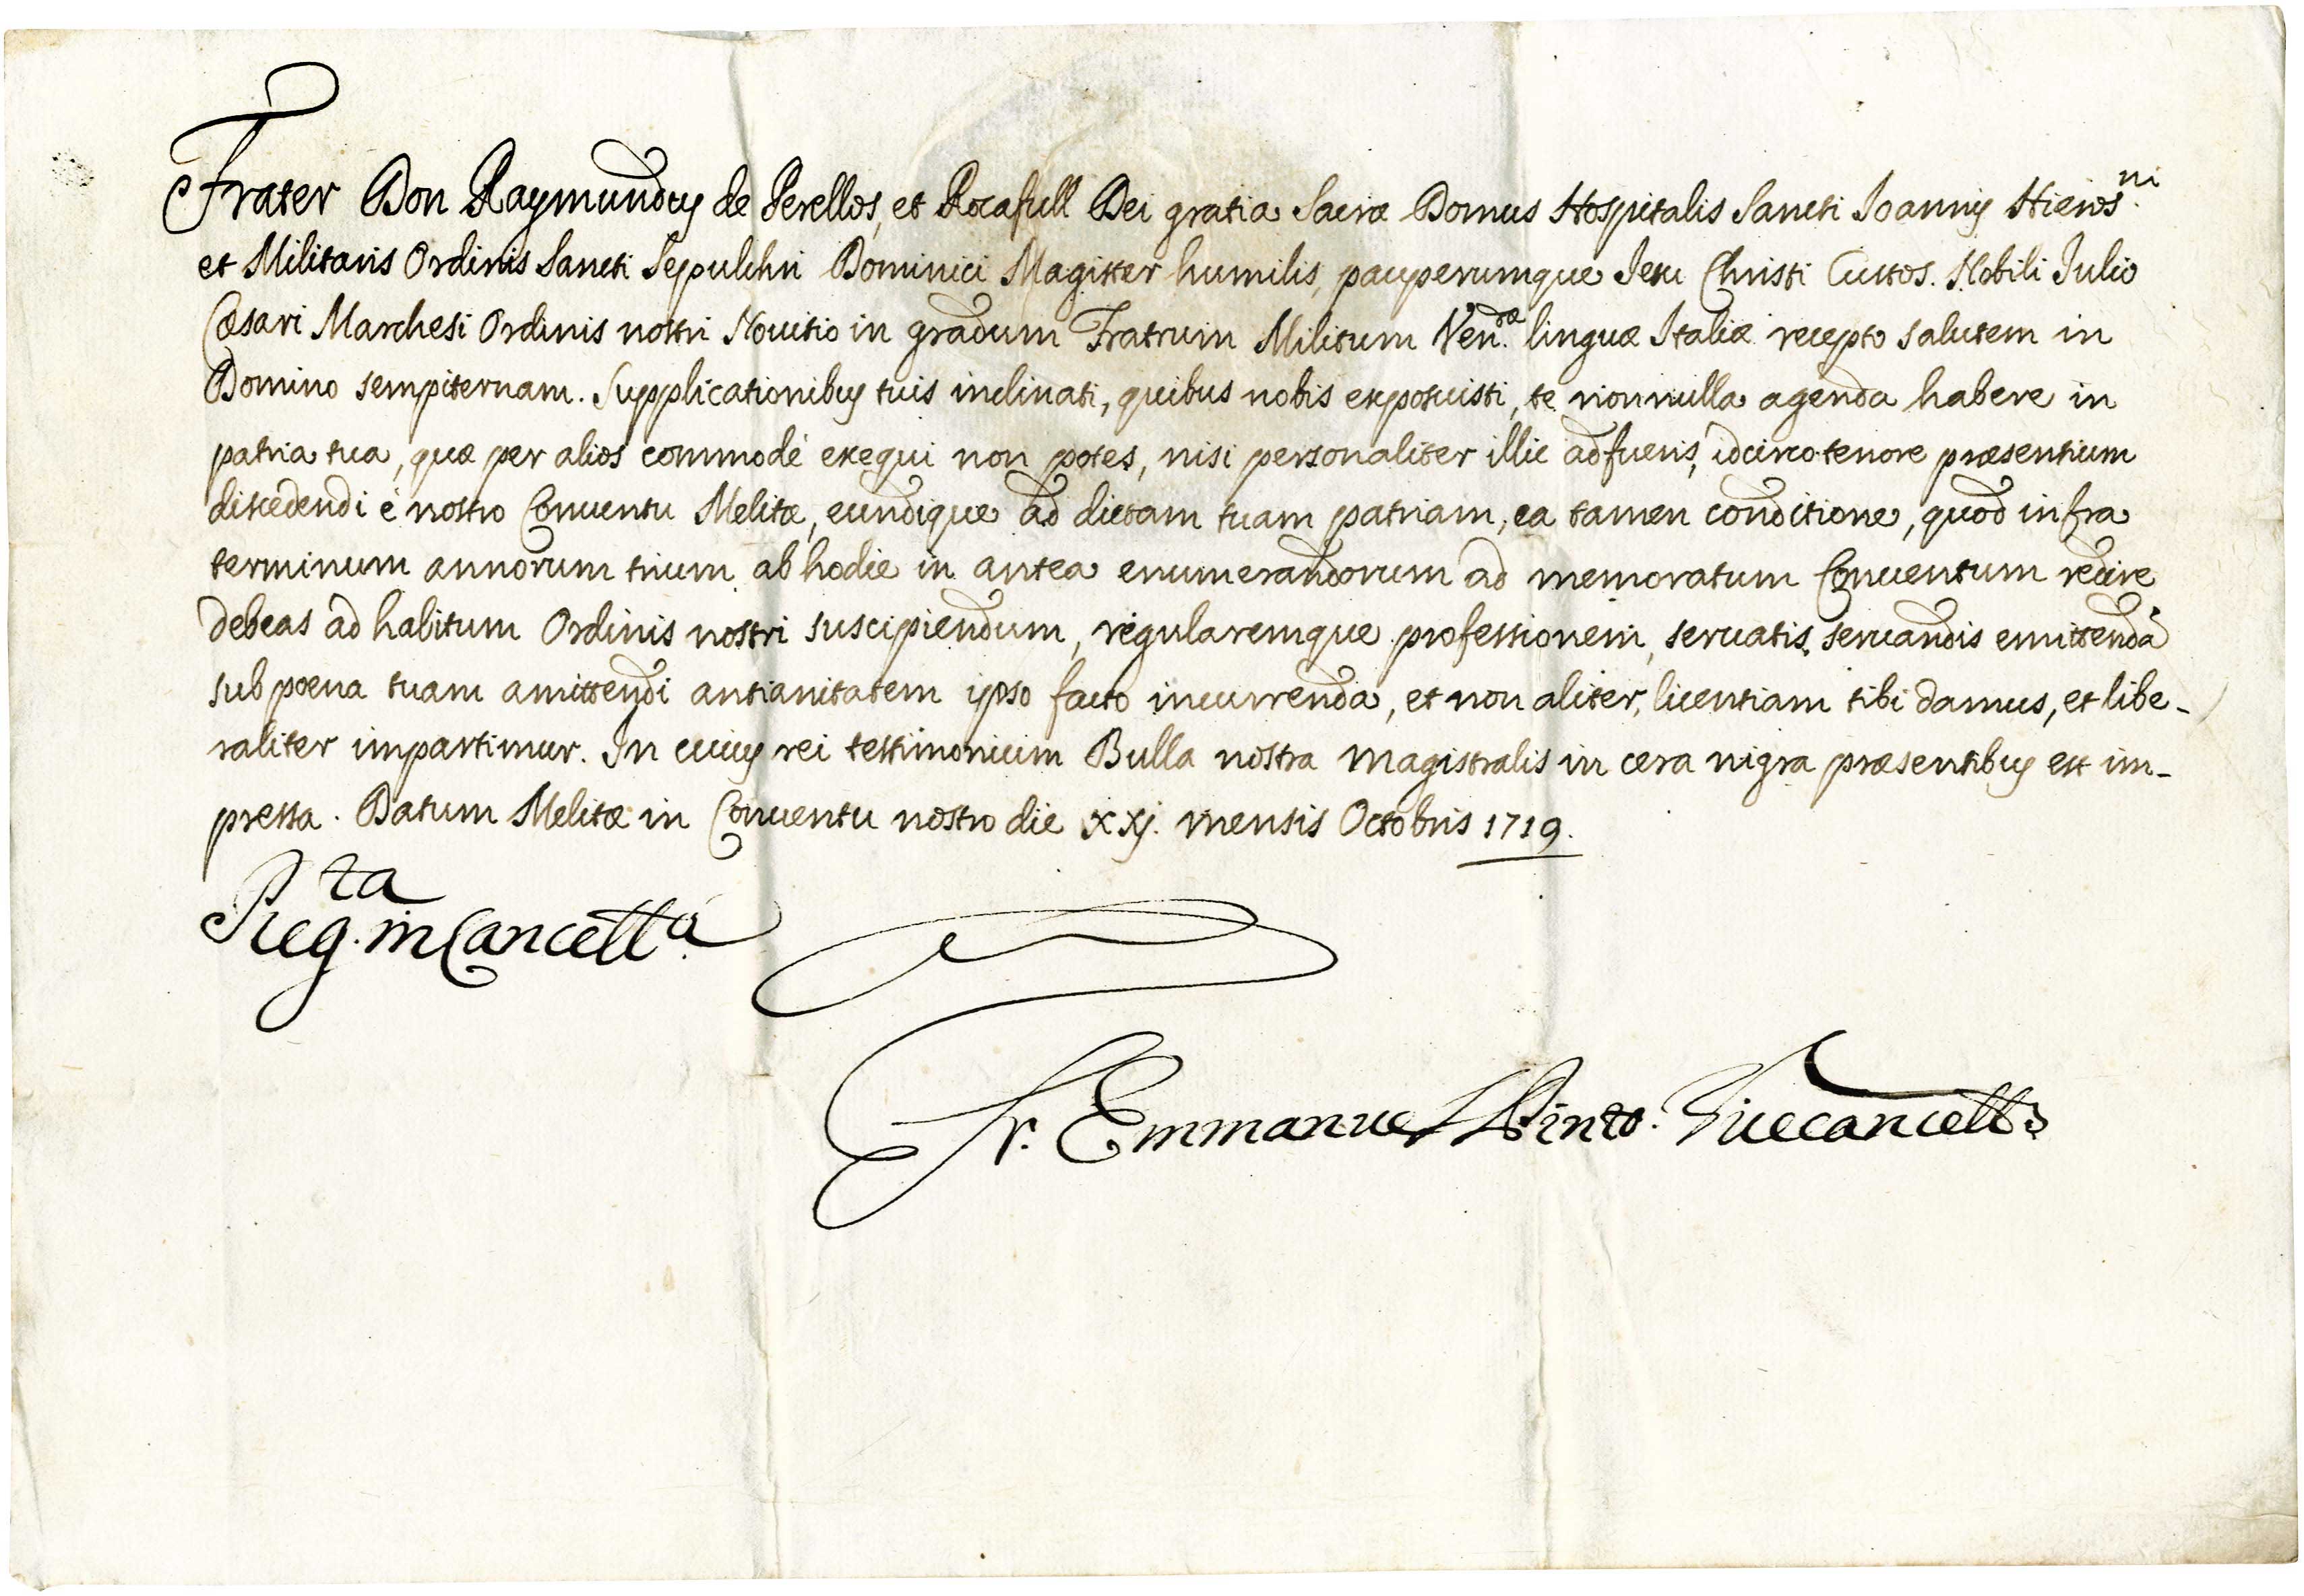 Frater Don Raymundus de Perellos, et Rocafull Dei gratia Sacræ Domus Hospitalis Sancti Joannis Hieros.ni
et Militaris Ordinis Sancti Sepulchri Dominici Magister humilis, pauperumque Jesu Christi Custos. Nobili Julio
Cæsari Marchesi Ordinis nostri Novitio in gradum Fratrum Militum Ven.dæ linguæ Italiæ recepto salutem in
Domino sempiternam. Supplicationibus tuis inclinati, quibus nobis exposuisti, te nonnulla agenda habere in
patria tua, quæ per alios commodè exequi non potes, nisi personaliter illic adfueris, idcirco tenore præsentium
discedendi è nostro Conventu Melitæ, eundique ad dictam tuam patriam, ea tamen conditione, quod infra
terminum annorum trium ab hodie in antea enumerandorum ad memoratum Conventum redire
debeas ad habitum Ordinis nostri suscipiendum, regularemque professionem, servatis servandis emittendã
sub poena tuam amittendi antianitatem ipso facto incurrenda, et non aliter, licentiam tibi damus, et libe-
raliter impartimur. In cuius rei testimonium Bulla nostra magistralis in cera nigra præsentibus est im-
pressa. Datum Melitæ in Conventu nostro die xxj. mensis Octobris 1719.
Reg.ta in Cancell.a
Fr. Emmanuel Pinto Vicecancell.s